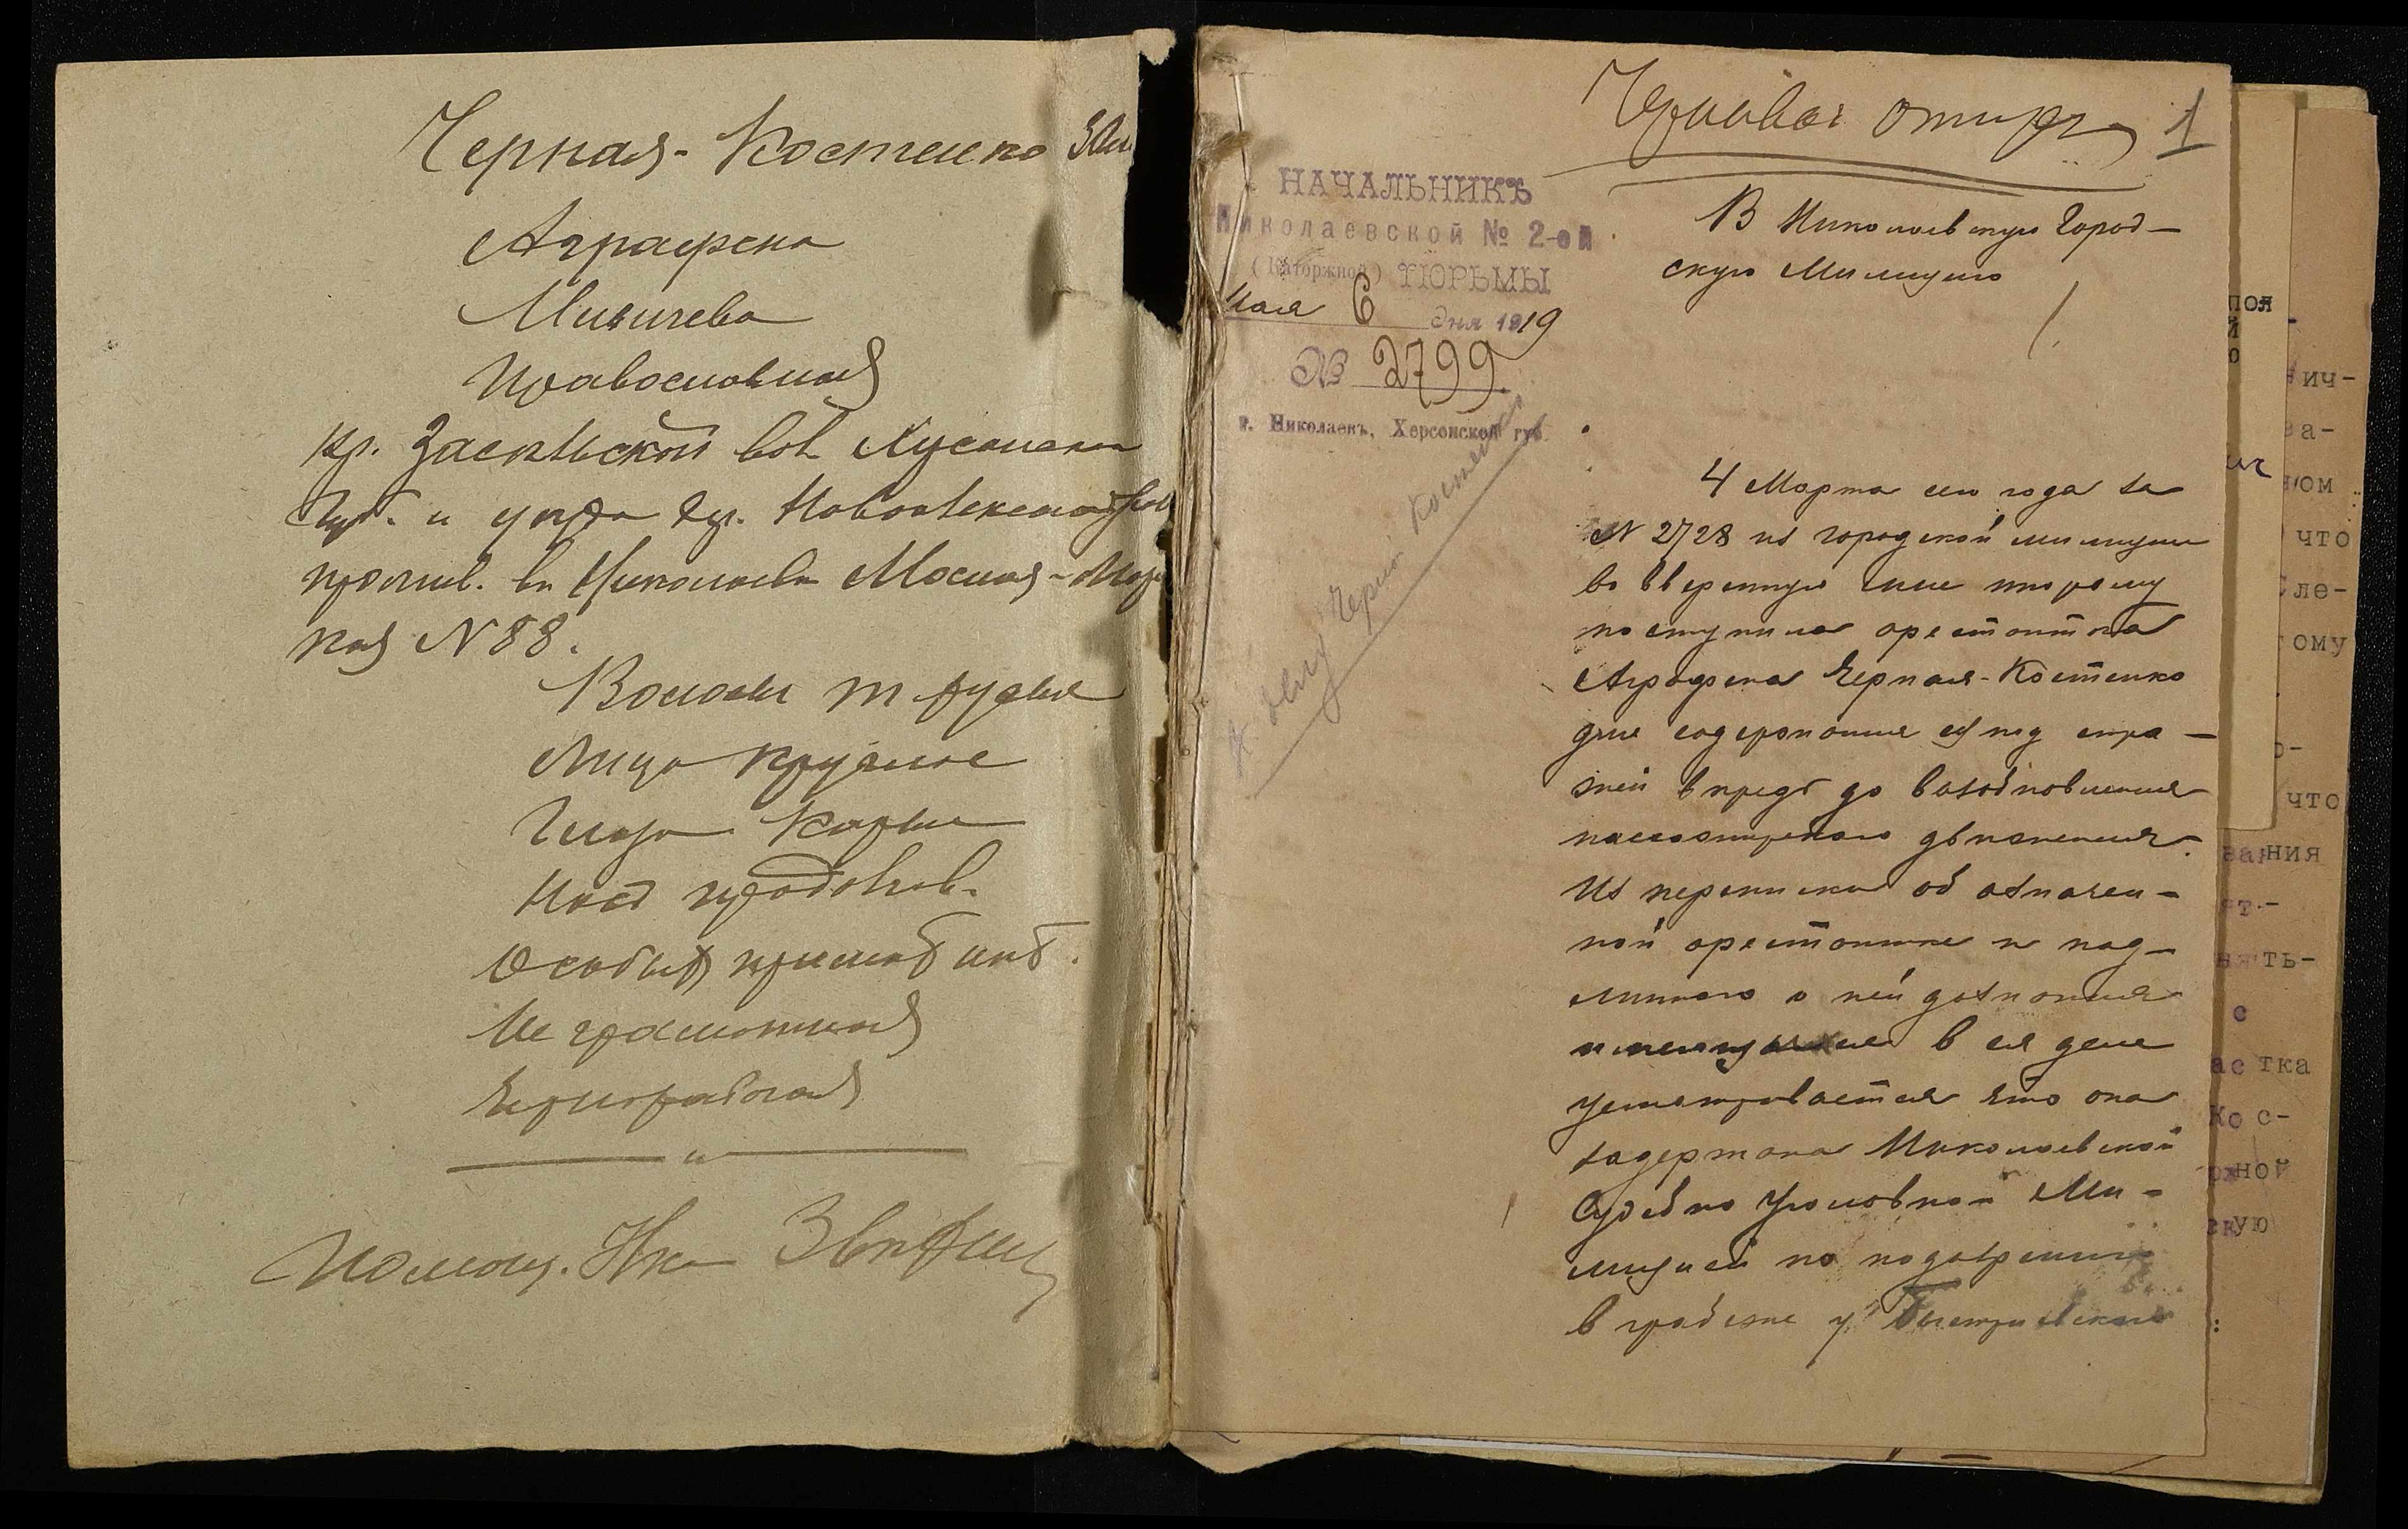 Черная-Костенко 30 л
Аграфена
Мивичева
Православная
кр. Засельской вол Хусонская
Губ. и уезда дер. Новоалександров
прожив. в Николаеве Московская-Мор
кая N 88.
Волосы т русые
Лицо круглое
Глаза Карие
Нос
Особых примет нет.
Не грамотная
Чернорабочая
Помощ. Нка
Черновая отпуск 1
НАЧАЛЬНИКЪ
Николаевской № 2-ой
(Каторжной) ТЮРЬМЫ
Мая 6 дня 1919
№ 2799
г. Николаевъ, Херсонской губ.
К делу Черной Костенко
В Николаевскую Город-
скую Милицию
4 Марта сего года за
N 2728 из городской милиции
во вверенную мне тюрьму
поступила арестантка
Аграфена Черная-Костенко
для содержания ея под стра-
жей впредь до возобновления
пассажирского движения.
Из переписки об означен-
ной арестантке и под-
линного о ней дознания
в ея деле
усматривается что она
задержана Николаевской
Судебно Уголовной Ми-
лицией по подозрению
в грабеже у
пол
й
о
ич-
за-
ом
что
сле-
ому
о-
что
вания
ят.-
нять-
с
ас тка
Ко с-
ржной
скую